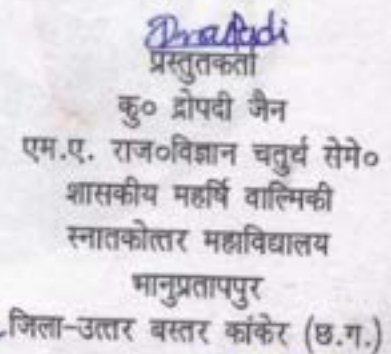 Draupadi
प्रस्तुतकर्ता
कु० द्रोपदी जैन
एम.ए. राज०विज्ञान चतुर्थ सेमे०
शासकीय महर्षि वाल्मिकी
स्नातकोत्तर महाविद्यालय
भानुप्रतापपुर
जिला-उत्तर बस्तर कांकेर (छ.ग.)